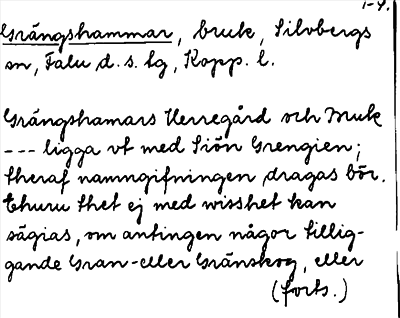 1-4.
Grängshammar, bruk, Silvbergs
sn, Falu d. s. lg, Kopp. l.
Grängshamars Herregård och Bruk
--- ligga vt med Siön Grengien;
theraf namngifningen dragas bör.
Ehuru thet ej med wisshet kan
sägias, om antingen någor tillig-
gande Gran- eller Gränskog, eller
(forts.)